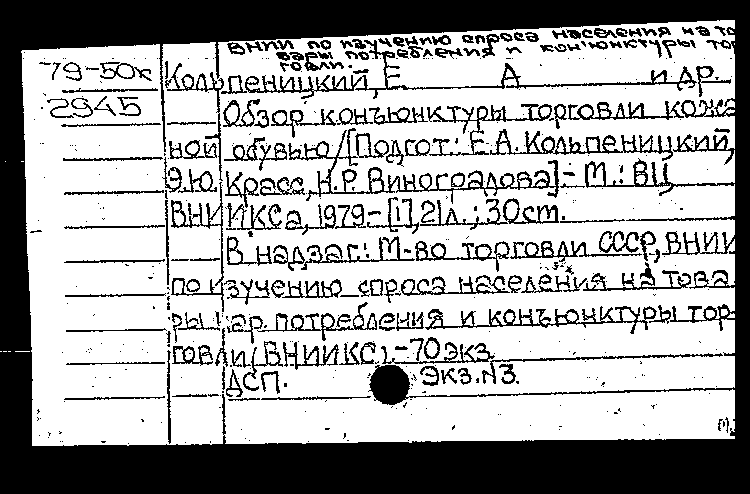 ВНИИ по изучению спроса населения на то
вары потребления и конъюнктуры тор
говли.
79-50к Кольпеницкий, Е А и др.
2945 Обзор конъюнктуры торговли кожа
ной обувью/[Подгот.: Е.А. Кольпеницкий,
Э.Ю. Красс, Н.Р. Виноградова].- М.: ВЦ
ВНИИКСа, 1979.- [1], 21л.; 30ст.
В надзаг.: М-во торговли СССР, ВНИИ
по изучению спроса населения на това
ры нар. потребления и конъюнктуры тор-
говли (ВНИИКС).- 70 экз.
ДСП. Экз.N3.